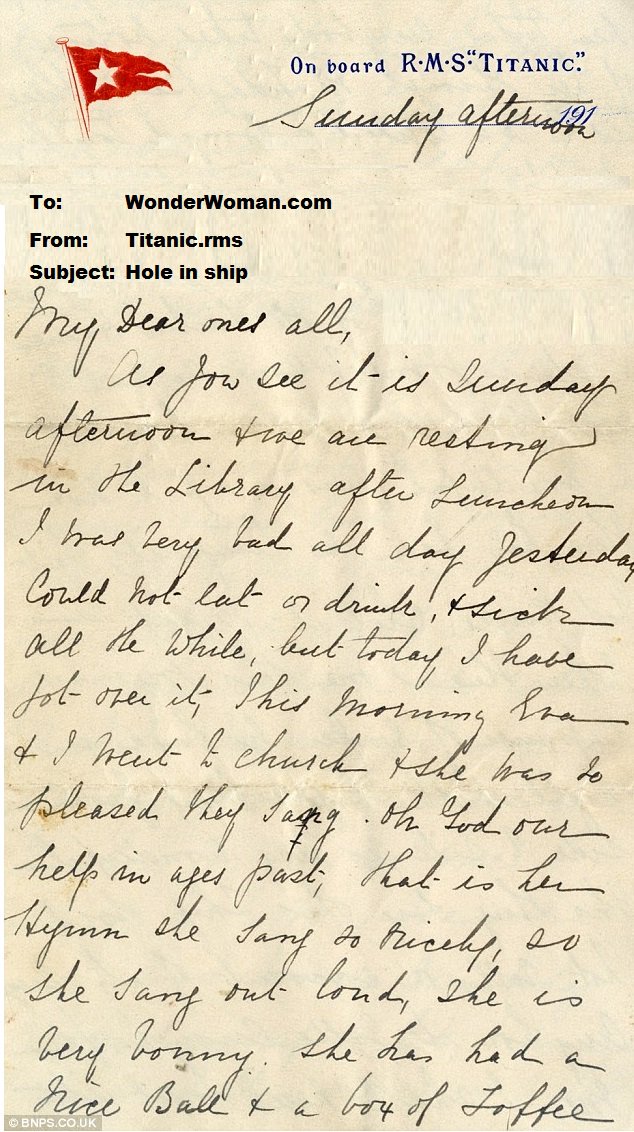 On board R·M·S. "TITANIC".
191
Sunday afternoon
To: WonderWoman.com
From: Titanic.rms
Subject: Hole in ship
My Dear ones all,
As you see it is Sunday
afternoon & we are resting
in the Library after Luncheon
I was very bad all day yesterday
Could not eat or drink, & sick
all the while, but today I have
got over it, This morning Eva
& I went to church & she was so
pleased they sang . Oh God our
help in ages past, that is her
Hymn she sang so nicely, so
she sang out loud, she is
very bonny. She has had a
nice Ball & a box of Toffee
© BNPS.CO.UK